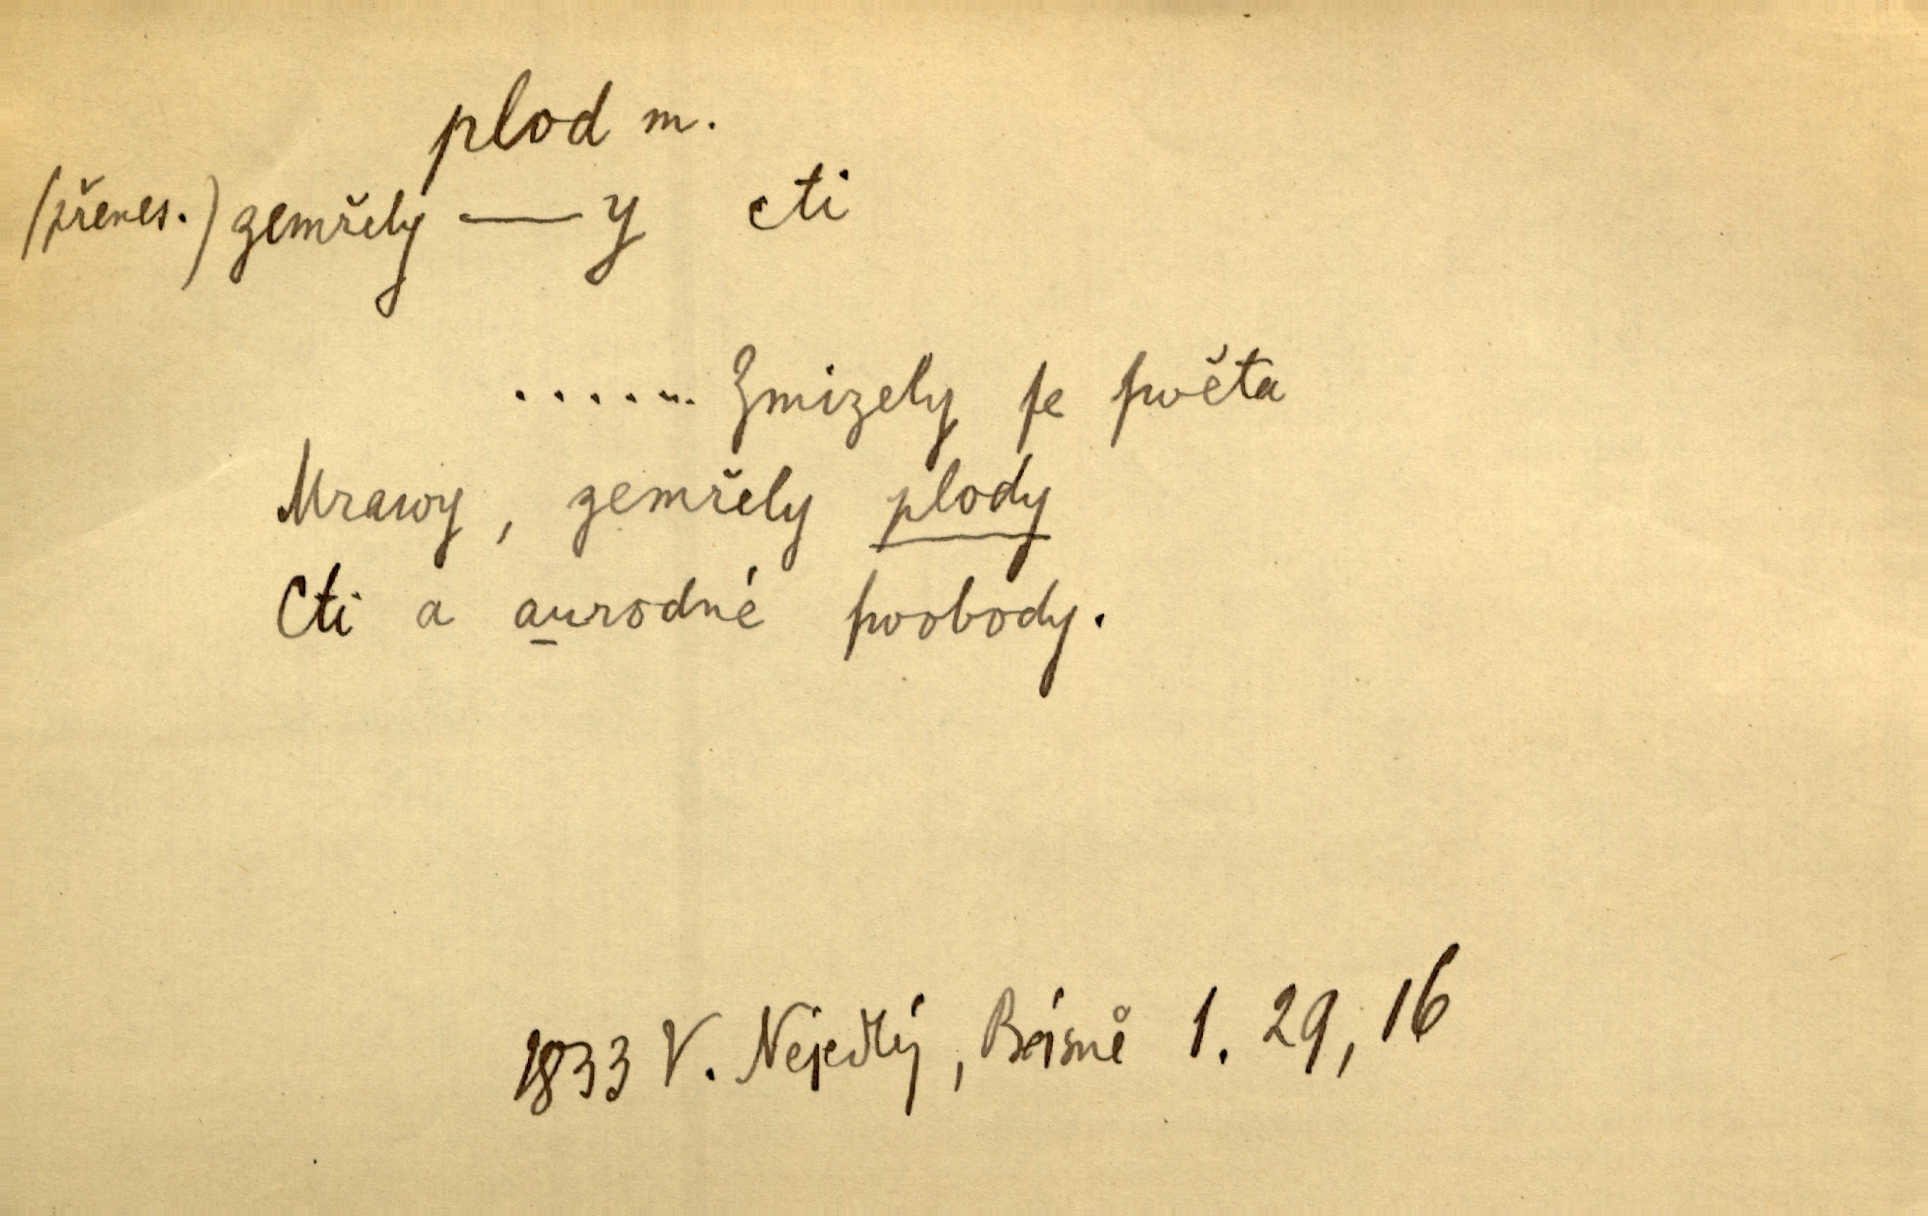 plod m.
(přenes.) zemřely — y cti
...... Zmizely ſe ſwěta
Mrawy, zemřely plody
Cti a aurodné ſwobody.
1833 V. Nejedlý, Básně 1. 29, 16